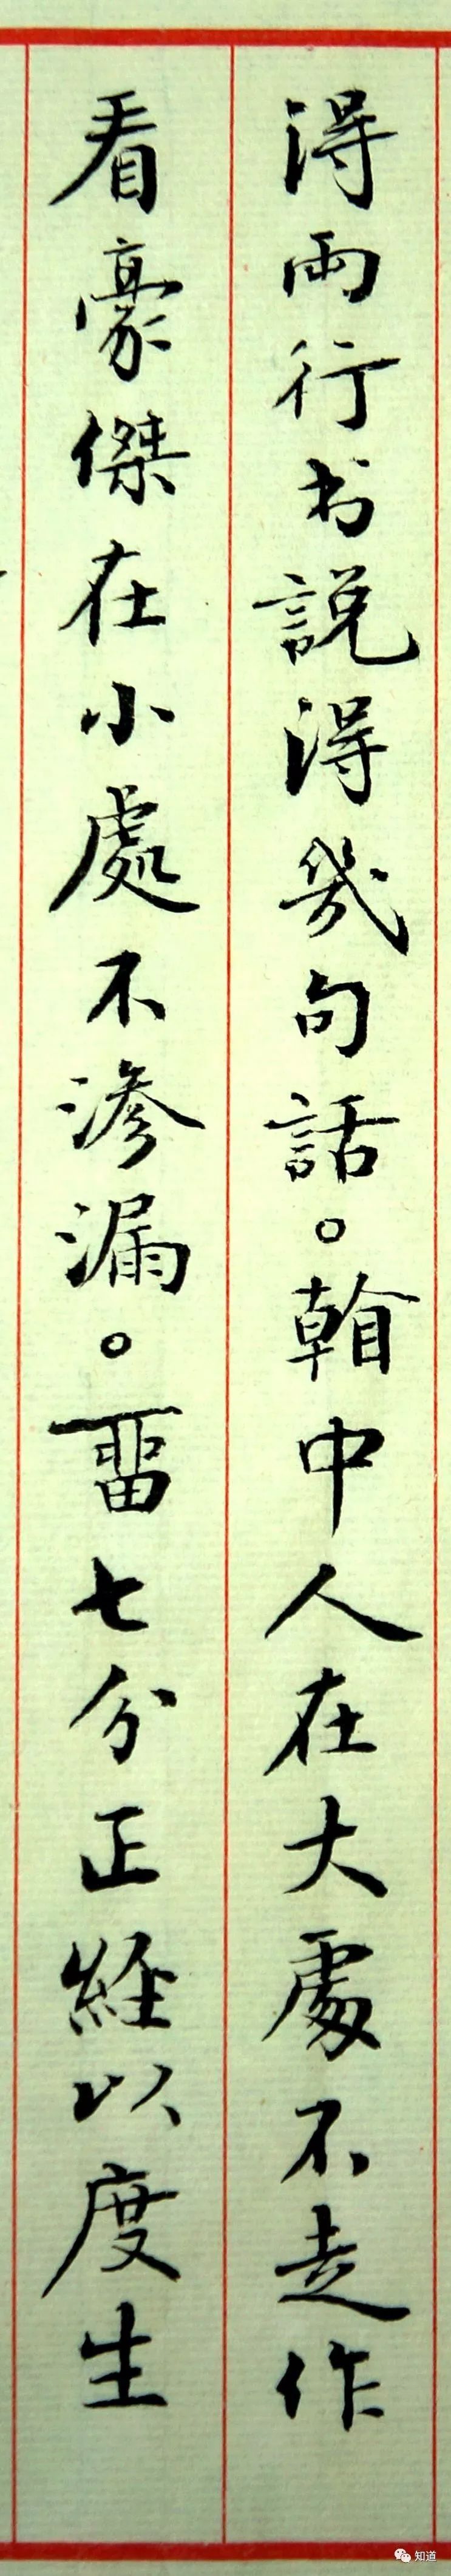 得兩行书說得幾句話。翰中人在大處不走作
看豪傑在小處不滲漏。畱七分正經以度生
知道